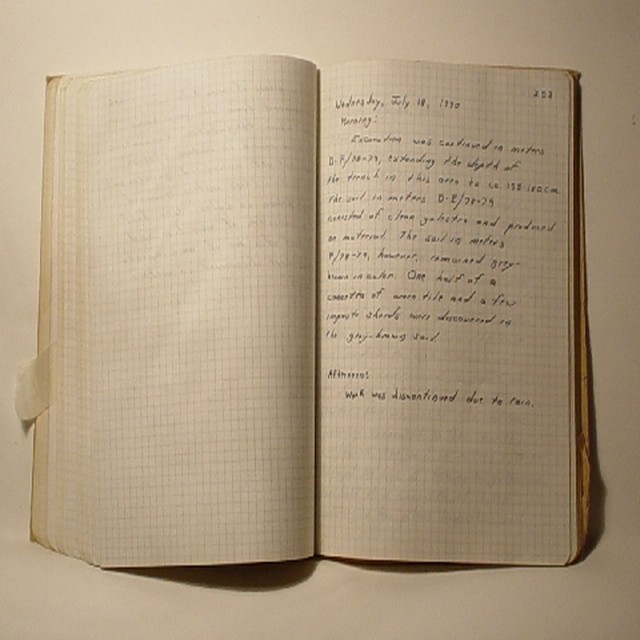 203
Wednesday, July 18, 1990
Morning:
Excavation was continued in meters
D-F/78-79, extending the depth of
the trench in this area to ca. 155 cm.
The soil in meters D-E/78-79
consisted of clean galestro and produced
no material. The soil in meters
F/78-79, however, remained grey-
brown in color. One half of a
of cover tile and a few
impasto sherds were discovered in
the grey-brown soil.
Afternoon:
Work was discontinued due to rain.